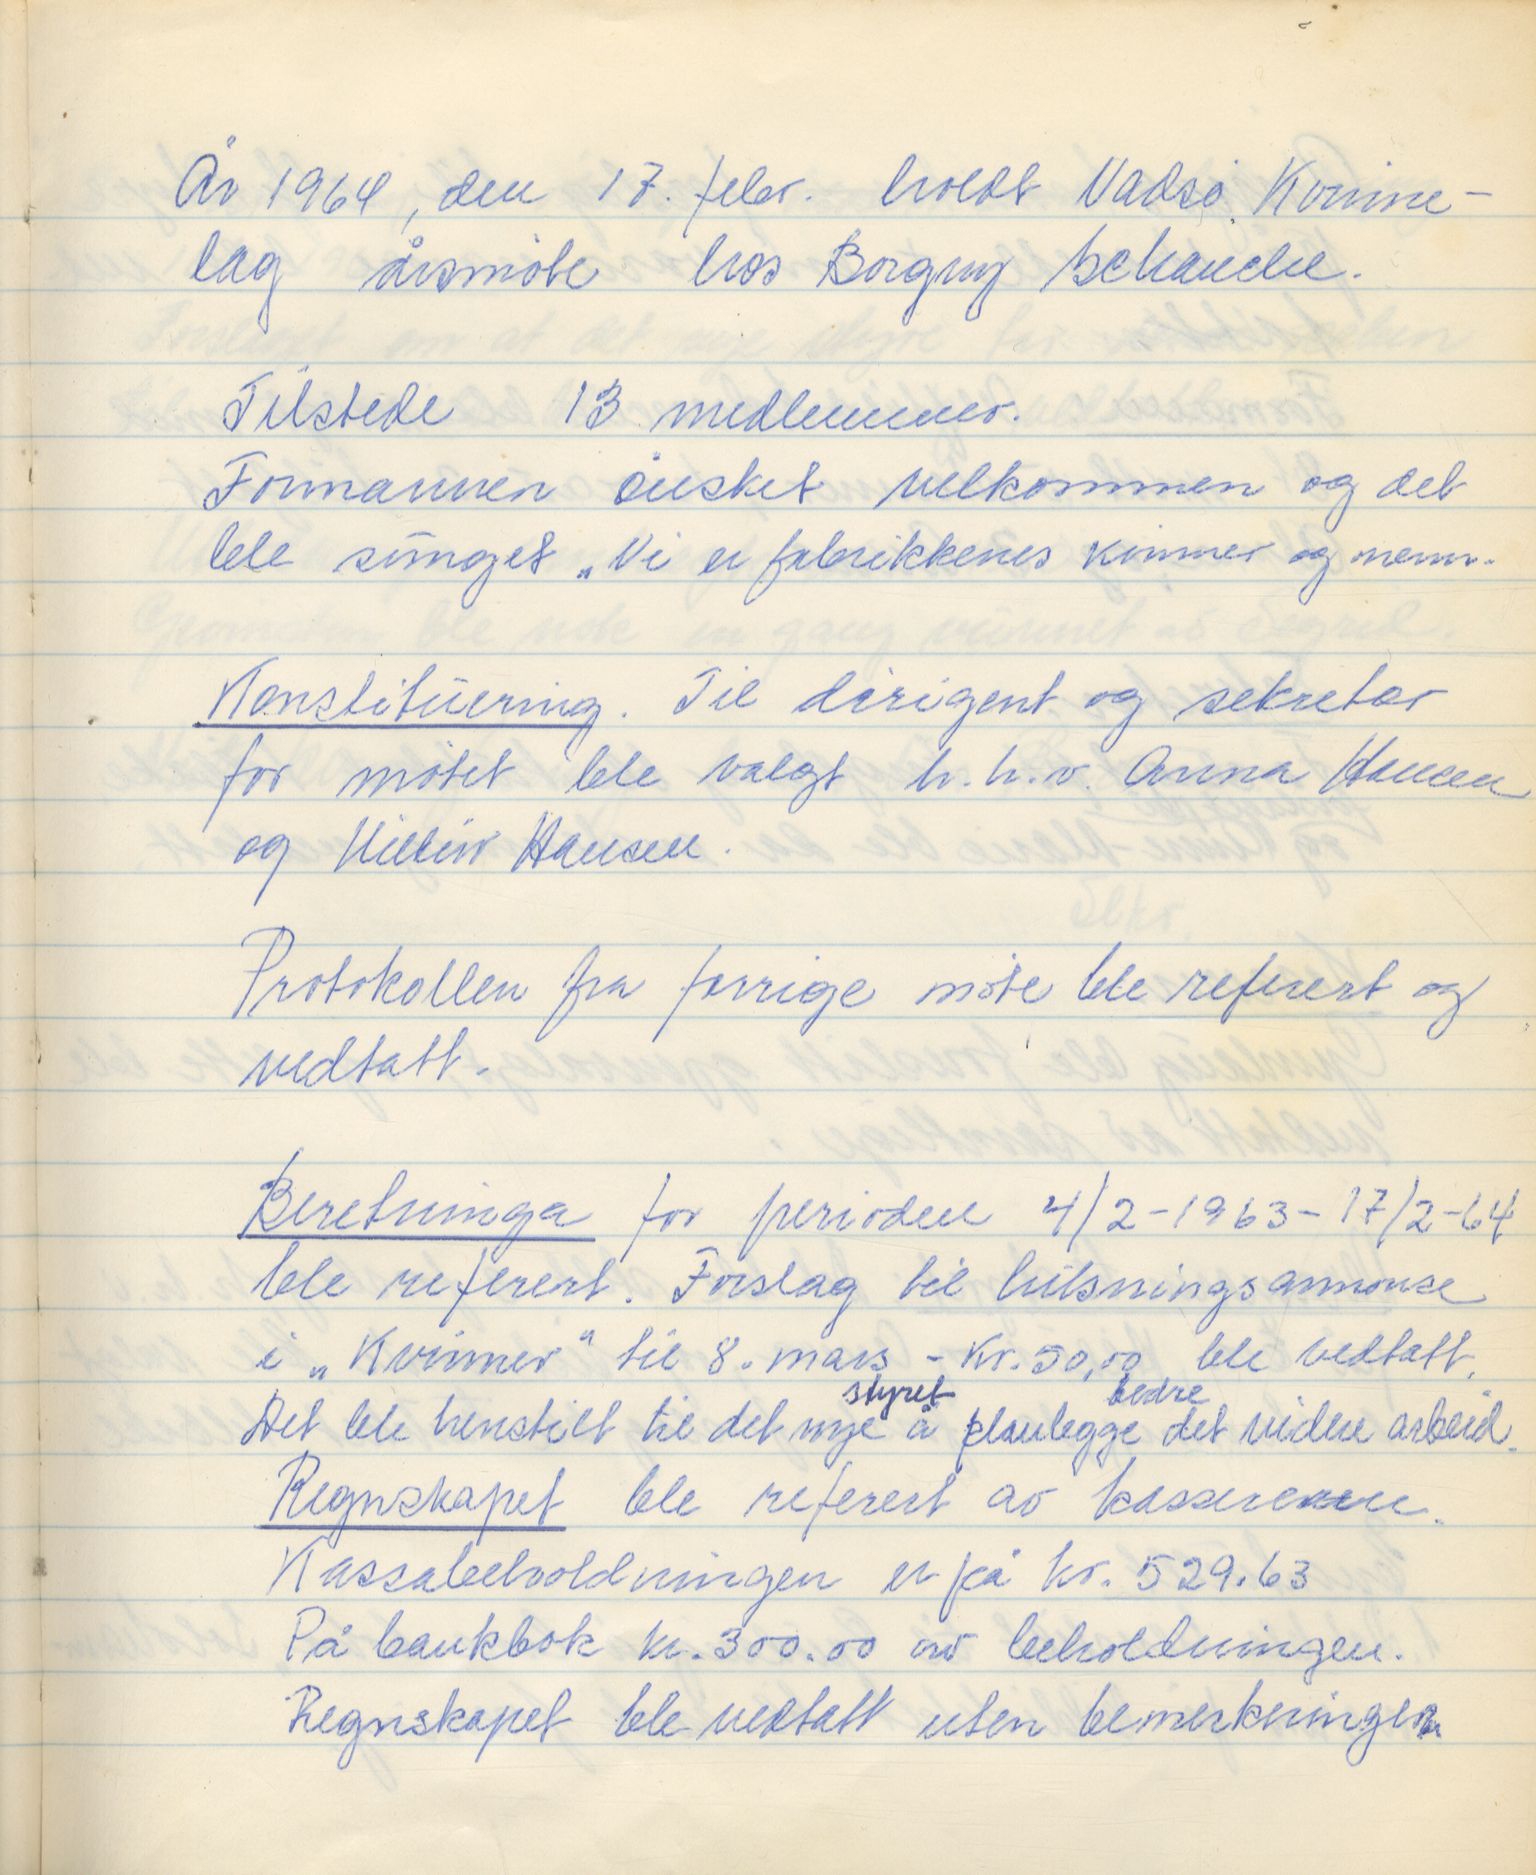 År 1964, den 17. febr. holdt Vadsø Kvinne-
lag årsmøte hos Borgny Schanche.
Tilstede 13 medlemmer.
Formannen ønsket velkommen og det
ble sunget „Vi er fabrikkenes kvinner og menn.
Konstituering. Til dirigent og sekretær
for møtet ble valgt h.h.v. Anna Hansen
og Hansen.
Protokollen fra forrige møte ble referert og
vedtatt.
Beretninga for perioden 4/2-1963-17/2-64
ble referert. Forslag til hilsningsannonse
i „Kvinner" til 8. mars - Kr. 50,00 ble vedtatt.
Det ble henstilt til det nye styret å planlegge bedre det videre arbeid.
Regnskapet ble referert av kassereren.
Kassabeholdningen er på kr. 529.63
På bankbok kr. 300.00 av beholdningen.
Regnskapet ble vedtatt uten bemerkninger